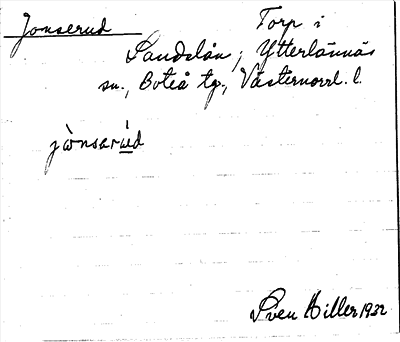 Jonserud Torp i
Sandslån, Ytterlännäs
sn., Boteå tg., Västernorrl. l.
jὼnsarú̲d
Sven Hiller 1932